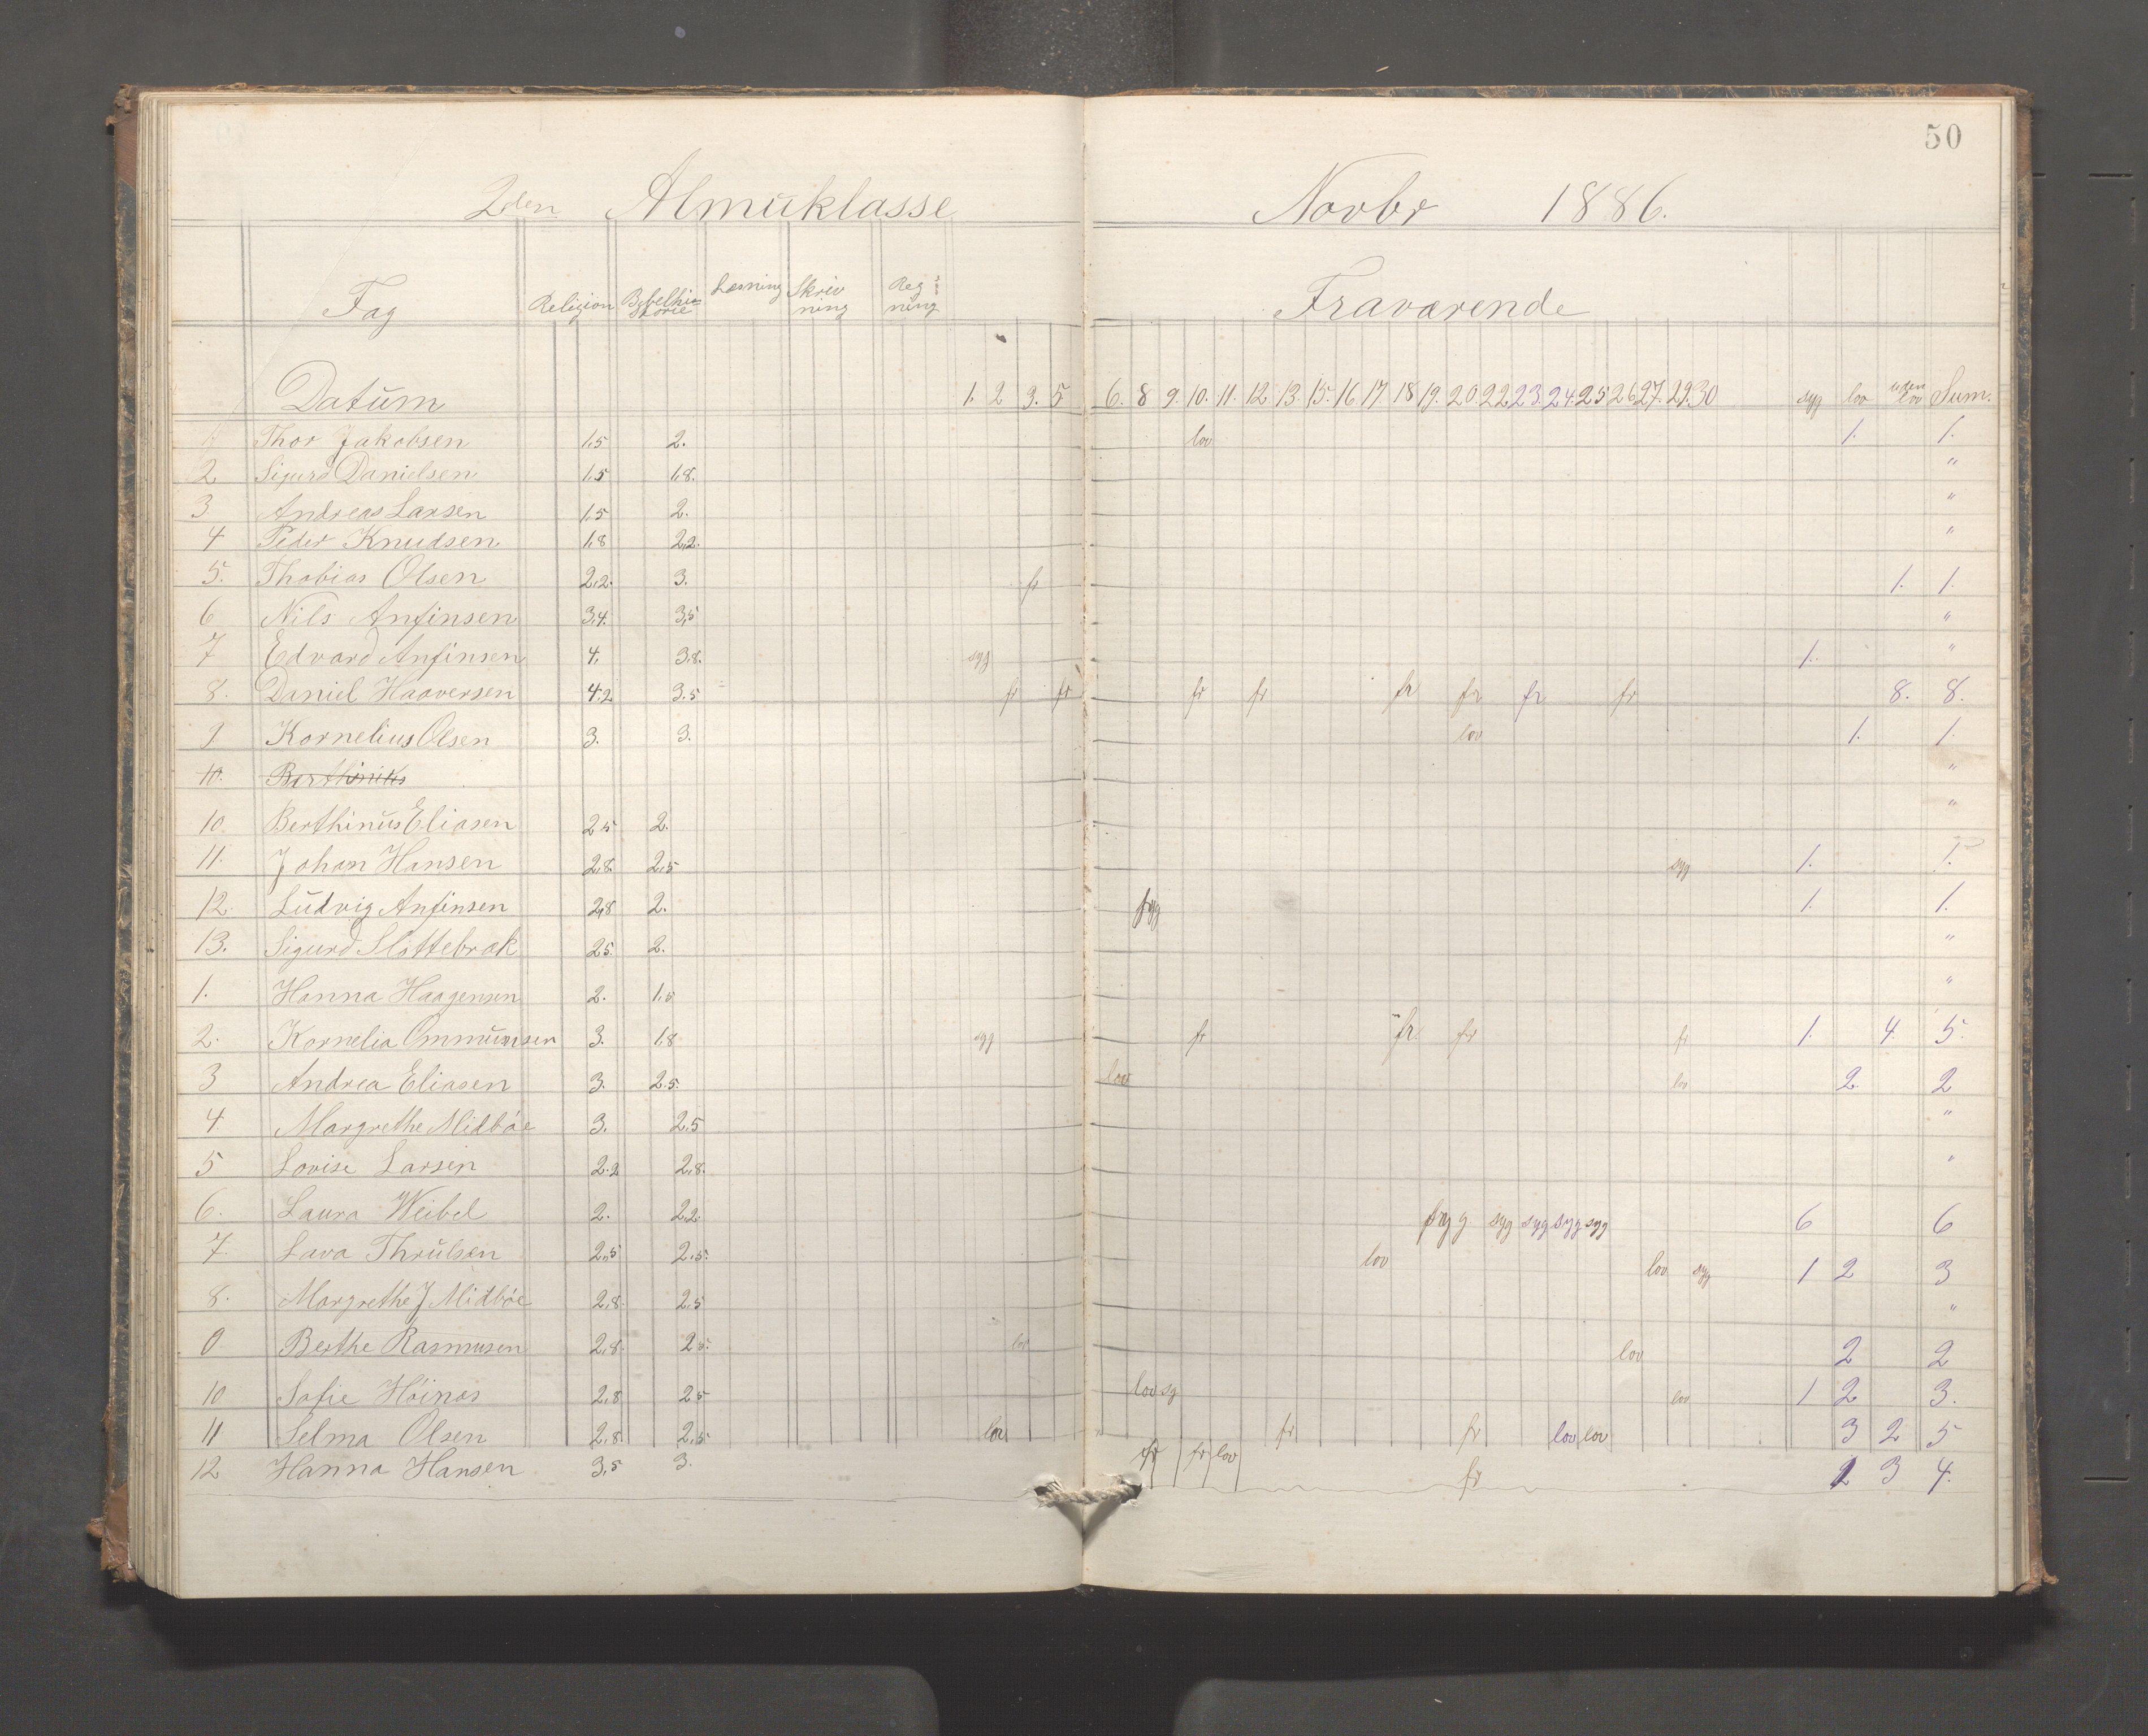 50
2den Almuklasse Novbr 1886.
Fag Religion Bibelhistorie Læsning Skrivning Regning Fraværende
Datum 1. 2 3. 5 6. 8 9. 10. 11. 12 13. 15. 16 17. 18 19. 20. 22 23. 24. 25 26 27. 29. 30 syg lov uden lov Sum.
1 Thor Jakobsen 1,5 2. lov 1. 1.
2 Sigurd Danielsen 1,5 1,8. "
3 Andreas Larsen 1,5 2. "
4 Peder Knudsen 1,8 2,2. "
5. Thobias Olsen 2,2. 3. fr 1. 1.
6 Nils Anfinsen 3,4. 3,5 "
7 Edvard Anfinsen 4. 3,8. syg 1. "
8. Daniel Haaversen 4.2 3.5 fr fr fr fr fr fr fr fr 8. 8.
9 Kornelius Olsen 3. 3. lov 1. 1.
10. Berthinius "
10 Berthinus Eliasen 2 5 2. "
11. Johan Hansen 2,8. 2,5 syg 1. 1.
12. Ludvig Anfinsen 2,8 2. syg 1. 1.
13. Sigurd Slottebrak 2 5. 2. "
1. Hanna Haagensen 2. 1,5 "
2. Kornelia Ommunsen 3. 1,8 syg fr fr. fr fr 1. 4. 5.
3 Andrea Eliasen 3. 2.5. lov lov 2. 2
4. Margrethe Midbøe 3. 2.5 "
5 Lovise Larsen 2.2 2,8. "
6. Laura Weibel 2. 2 2. syg syg syg syg syg 6 6
7. Lava Thrulsen 2,5 2,5. lov lov syg 1 2 3
8. Margrethe J Midbøe 2,8. 2,5 "
0 Berthe Rasmusen 2,8. 2 5. lov lov 2 2
10 Sofie Høinæs 2,8 2 5 lov sg lov 1 2 3.
11 Selma Olsen 2,8. 2,5. lov fr fr lov lov 3 2 5
12 Hanna Hansen 3,5 3. fr fr lov fr 1 3 4.